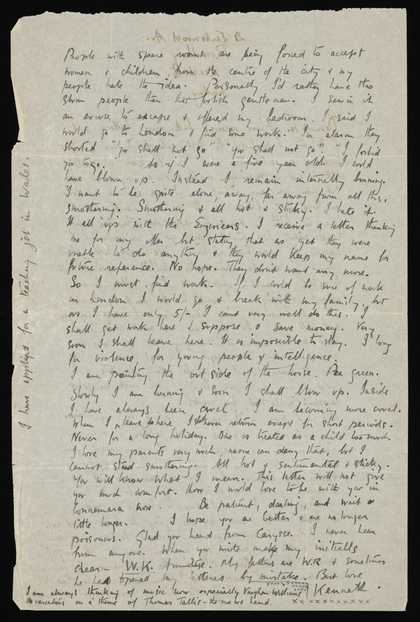 People with spare rooms are being forced to accept
women & children from the centre of the city & my
people hate the idea. Personally I'd rather have the
slum people than her foolish gentleman. I saw in it
an excuse to escape & offered my bedroom. I said I
would go to London & find some work. In alarm they
shouted "you shall not go" "You shall not go" I forbid
you to go. As if I were a five year old. I could
have blown up. Instead I remain internally burning.
I want to be quite alone, away, far away from all this.
smothering. Smothering & all hot & sticky. I hate it.
It all up with the Engineers. I receive a letter thanking
me for my offer but stating that as yet they were
unable to do anything & they would keep my name for
future reference. No hope. They don't want any more.
So I must find work. If I could be sure of work
in London I would go & break with my family, but
as I have only 5/- I can't very well do this. I
shall get work here I suppose & save money. Very
soon I shall leave here. It is impossible to stay. I long
for violence, for young people & intelligence.
I am painting the outside of the house. Pea green.
Slowly I am burning & soon I shall blow up. Inside
I have always been cruel. I am becoming more cruel.
When I leave here I shall never return except for short periods.
Never for a long holiday. One is treated as a child too much.
I love my parents very much, none can deny that, but I
cannot stand smothering. All hot & sentimental & sticky.
You will know what I mean. This letter will not give
you much comfort. How I would love to be with you in
Connemara now. Be patient, darling, and wait a
little longer. I hope you are better & are no longer
poisonous. Glad you heard from Carysse. I never hear
from anyone. When you write make my initials
clear. W.K. please. My father's are W.R & sometimes
he has opened my letters by mistake. Best love
Kenneth.
I am always thinking of music now especially Vaughan Williams'
Variations on a theme of Thomas Tallis.
x-x-x-x-x-x-x-x
I have applied for a teaching job in Wales.